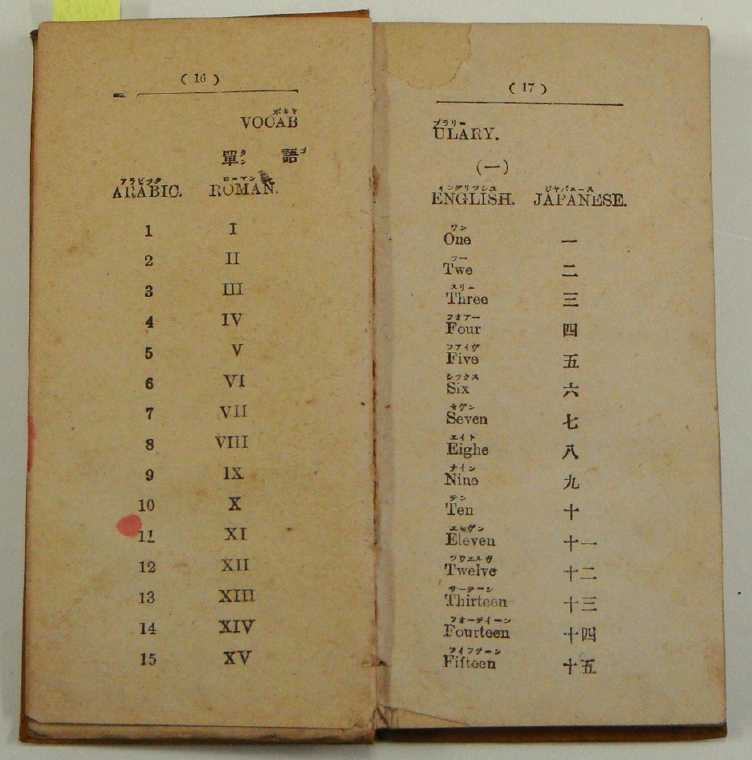 ( 16 )
ボキヤ
VOCAB
單タン 語ゴ
アラビツク ローマン
ARABIC. ROMAN.
1 I
2 II
3 III
4 IV
5 V
6 VI
7 VII
8 VIII
9 IX
10 X
11 XI
12 XII
13 XIII
14 XIV
15 XV
( 17 )
ブラリー
ULARY.
(一)
イングリツシユ ジヤパニース
ENGLISH. JAPANESE.
ワン
One 一
ツー
Twe 二
スリー
Three 三
フオアー
Four 四
フアイヴ
Five 五
シツクス
Six 六
セヴン
Seven 七
エイト
Eighe 八
ナイン
Nine 九
テン
Ten 十
エレヴン
Eleven 十一
ツウエルヴ
Twelve 十二
サーテーン
Thirteen 十三
フオーテイーン
Fourteen 十四
フイフテーン
Fifteen 十五